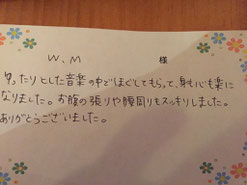 W.M 様
ゆったりとした音楽の中でほぐしてもらって、身も心も楽に
なりました。お腹の張りや腰周りもスッキリしました。
ありがとうございました。